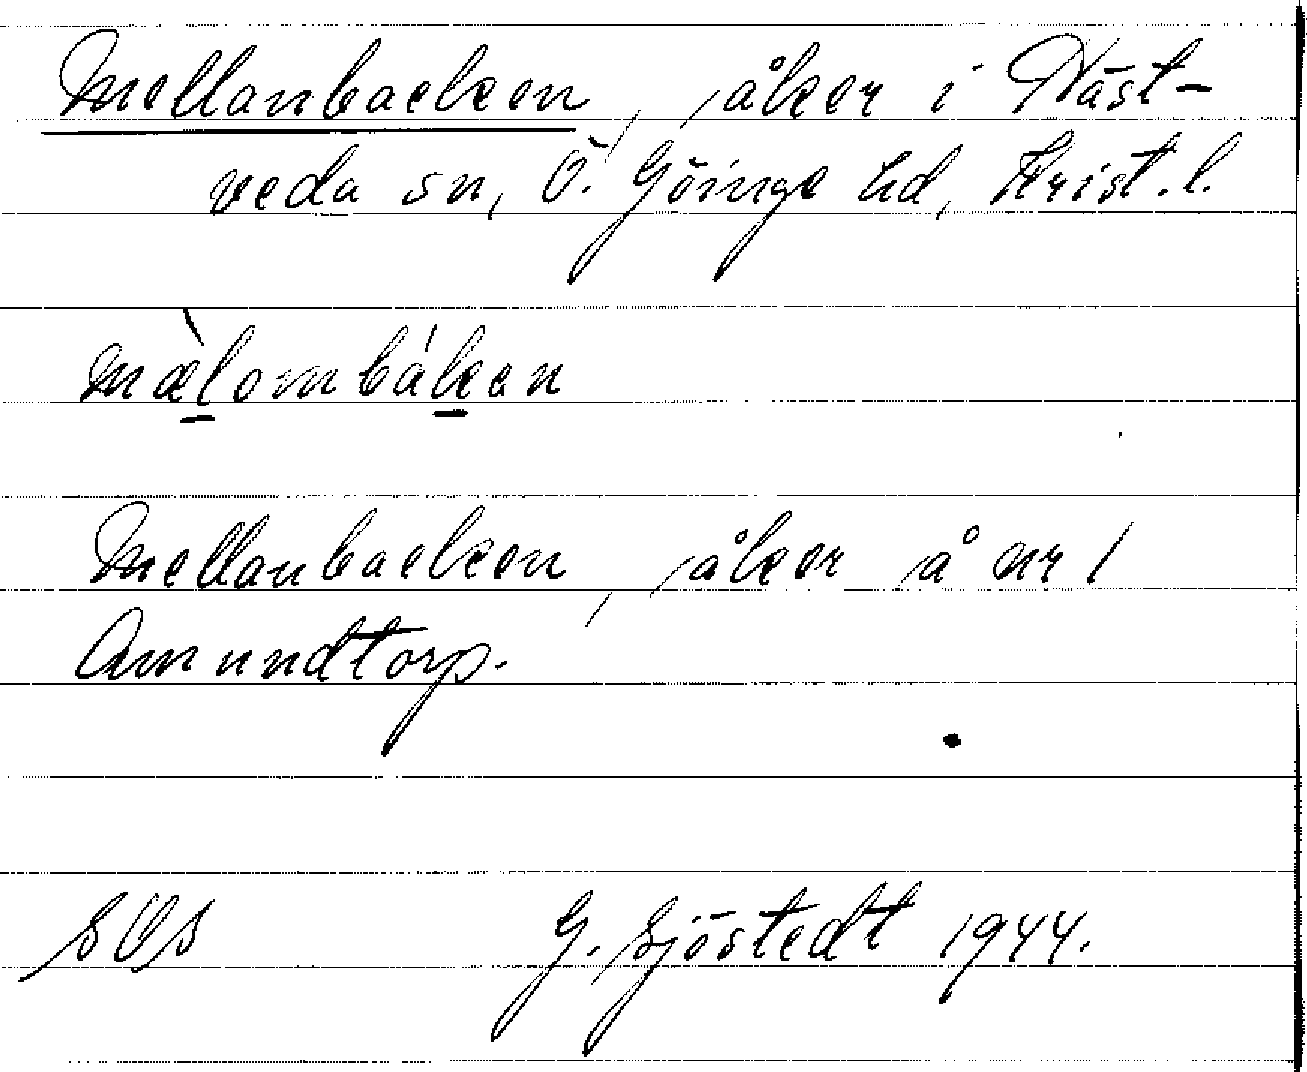 Mellanbacken, åker i Häst-
veda sn, Ö. Göinge hd, Krist. l.
mælombákan
Mellanbacken, åker å nr 1
Amundtorp.
SOS G. Sjöstedt 1944.